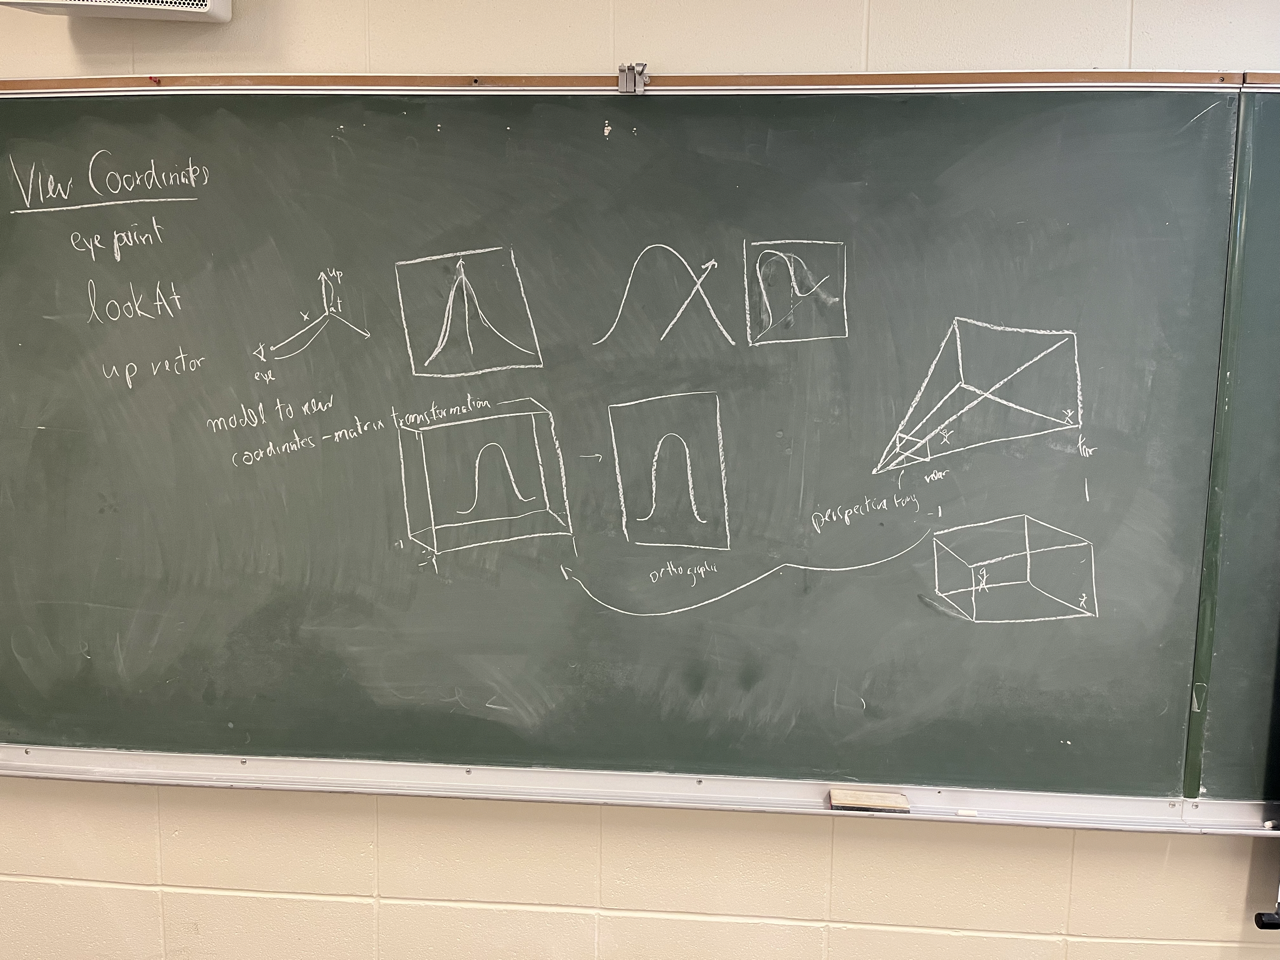 View Coordinates
eye point
look At
up vector
up
at
x
eye
model to view
coordinates - matrix transformation
-1
-1
orthographic
near
far
perspective
-1
1